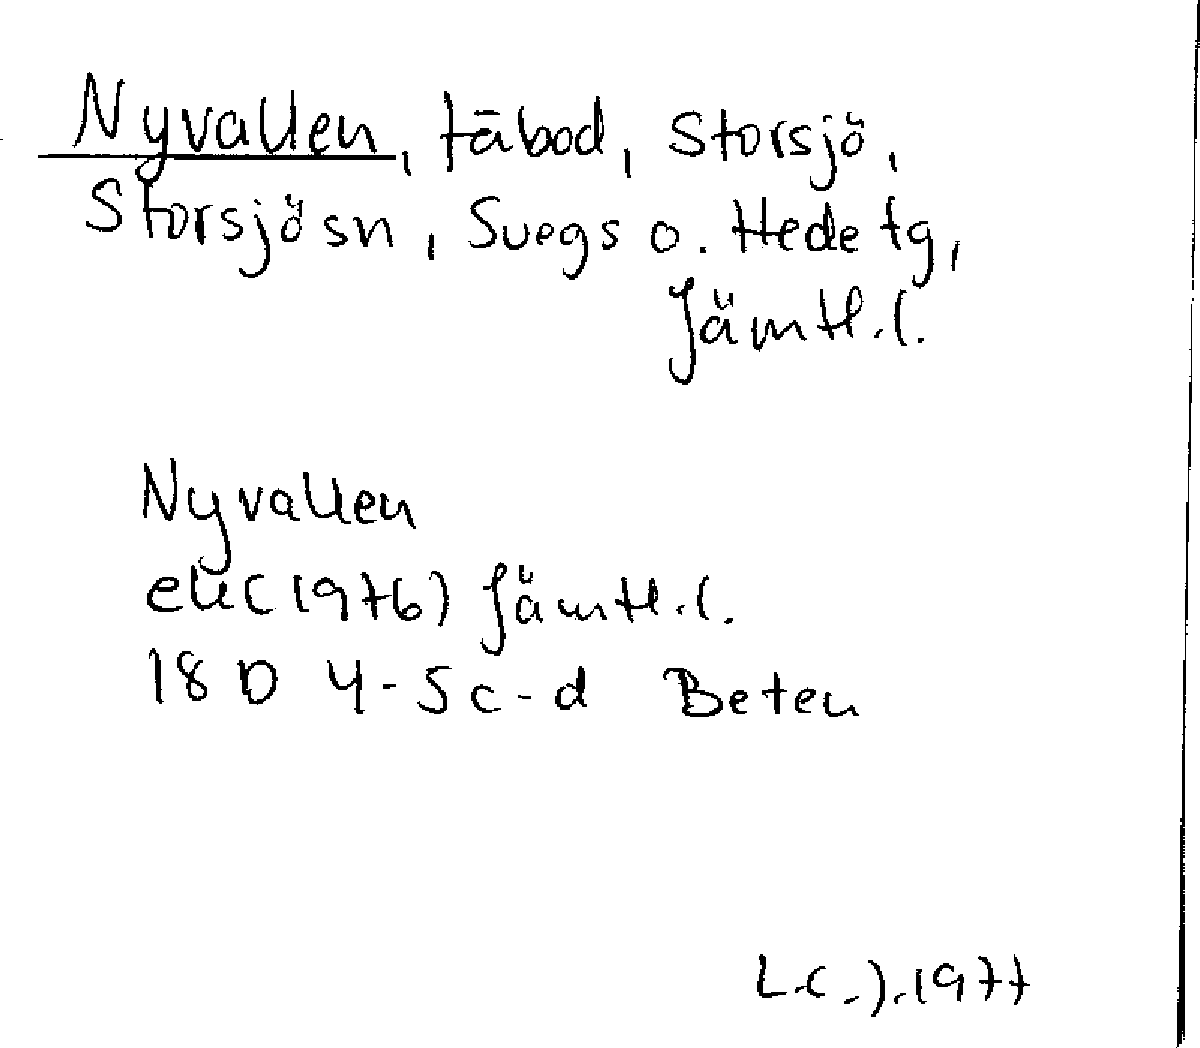 Nyvallen, fäbod, Storsjö,
Storsjö sn, Svegs o. Hede tg,
Jämtl. l.
Nyvallen
ek (1976) Jämtl. l.
18 D 4-5 c-d Beten
L.C.J. 1977